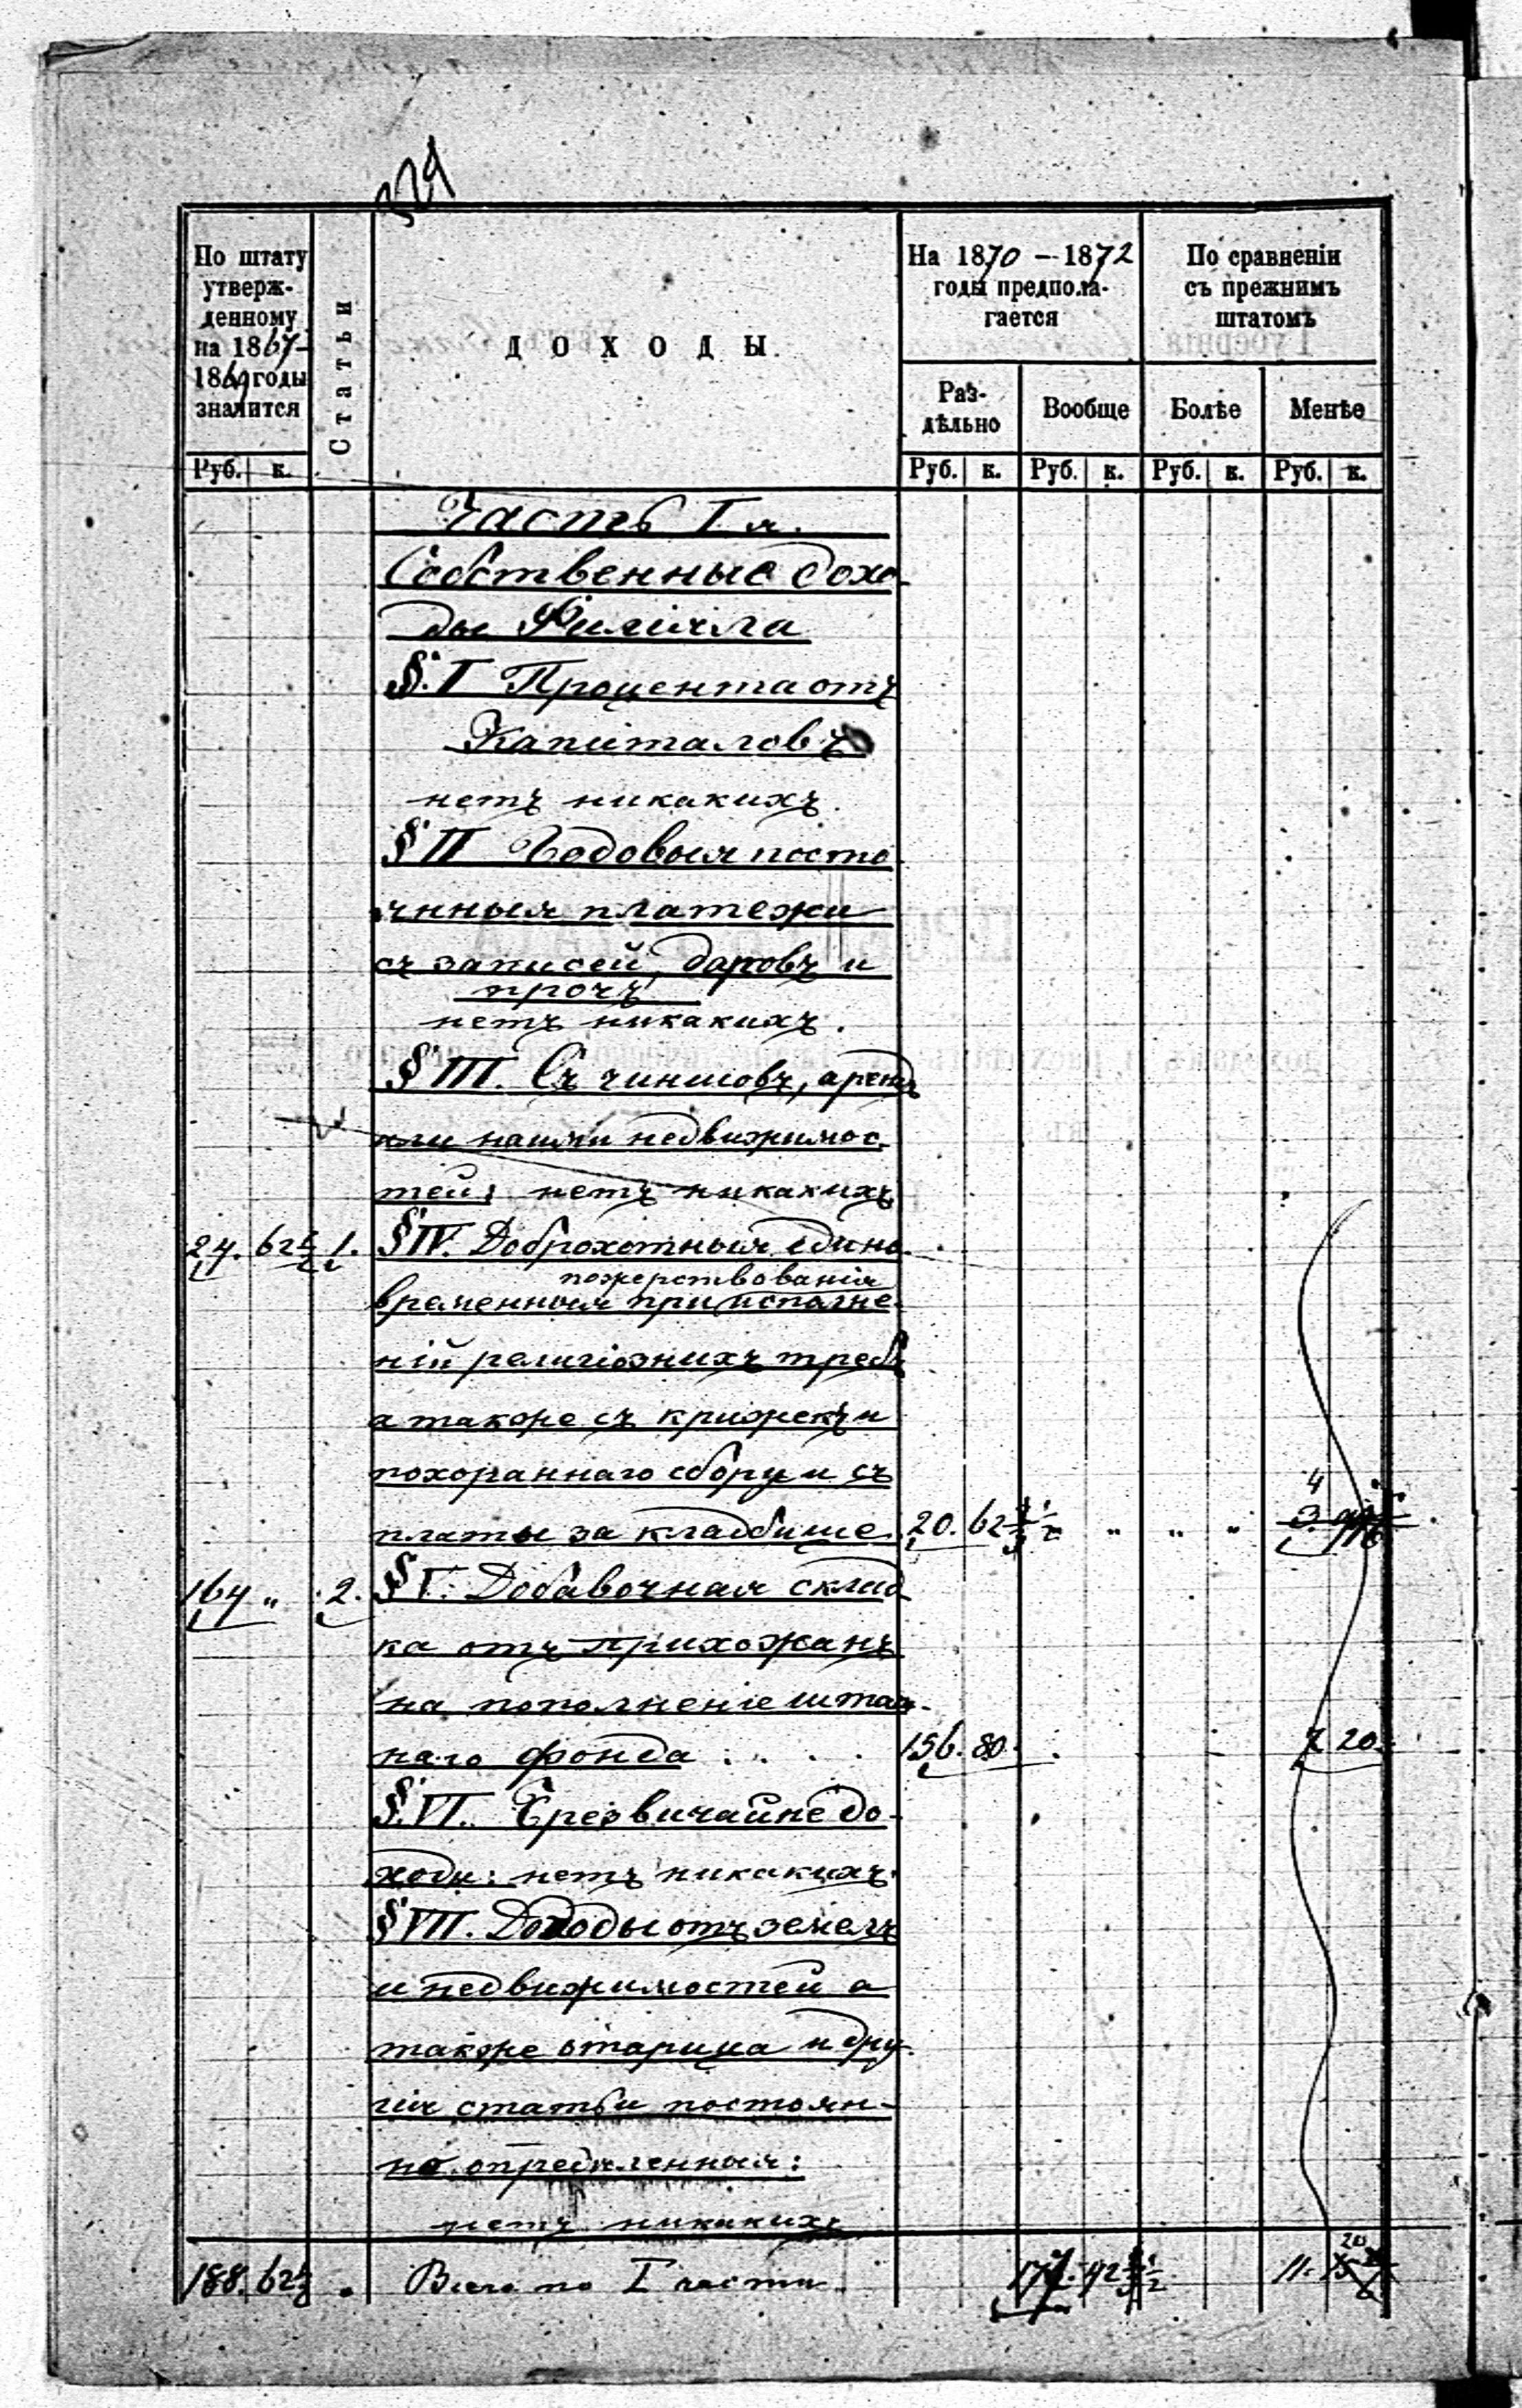 329
По штату
утверж-
денному
на 1867-
1869 годы
значится
Статьи
ДОХОДЫ.
На 1870 — 1872
годы предпола-
гается
По сравненіи
съ прежнимъ
штатомъ
Раз-
дѣльно
Вообще
Болѣе
Менѣе
Руб. к.
Руб. к.
Руб. к.
Руб. к.
Руб. к.
Часть I я.
Собственные дохо-
ды Филіила
§. I Процента отъ
Капиталовъ
нетъ никакихъ.
§ II Годовыя посто
янныя платежи
съ записей, даровъ и
прочъ
нетъ никакихъ.
§ III. Съ чиншовъ, арендъ
или найми недвижимос-
тей: нетъ никакихъ
24. 62½ 1. § IV. Доброхотныя едино-
пожерствованія
временныя при исполне-
ній религіозних требъ
а также съ крижекъ и
похораннаго сбору и съ
платы за кладбище 20. 62½ „ „ „ 4
164 „ 2. § V. Добавочная склад
ка отъ прихожанъ
на пополненіе штат-
наго фонда : . . . 156. 80. 7 20.
§. VI. Чрезвичайне до-
ходи: нетъ никакихъ.
§ VII. Доходы отъ земель
и недвижимостей а
также отарица и дру-
гія статьи постоян-
но опредиленныя:
нетъ никакихъ
188. 62½ Всего по I части. 177. 42½ 11. 20